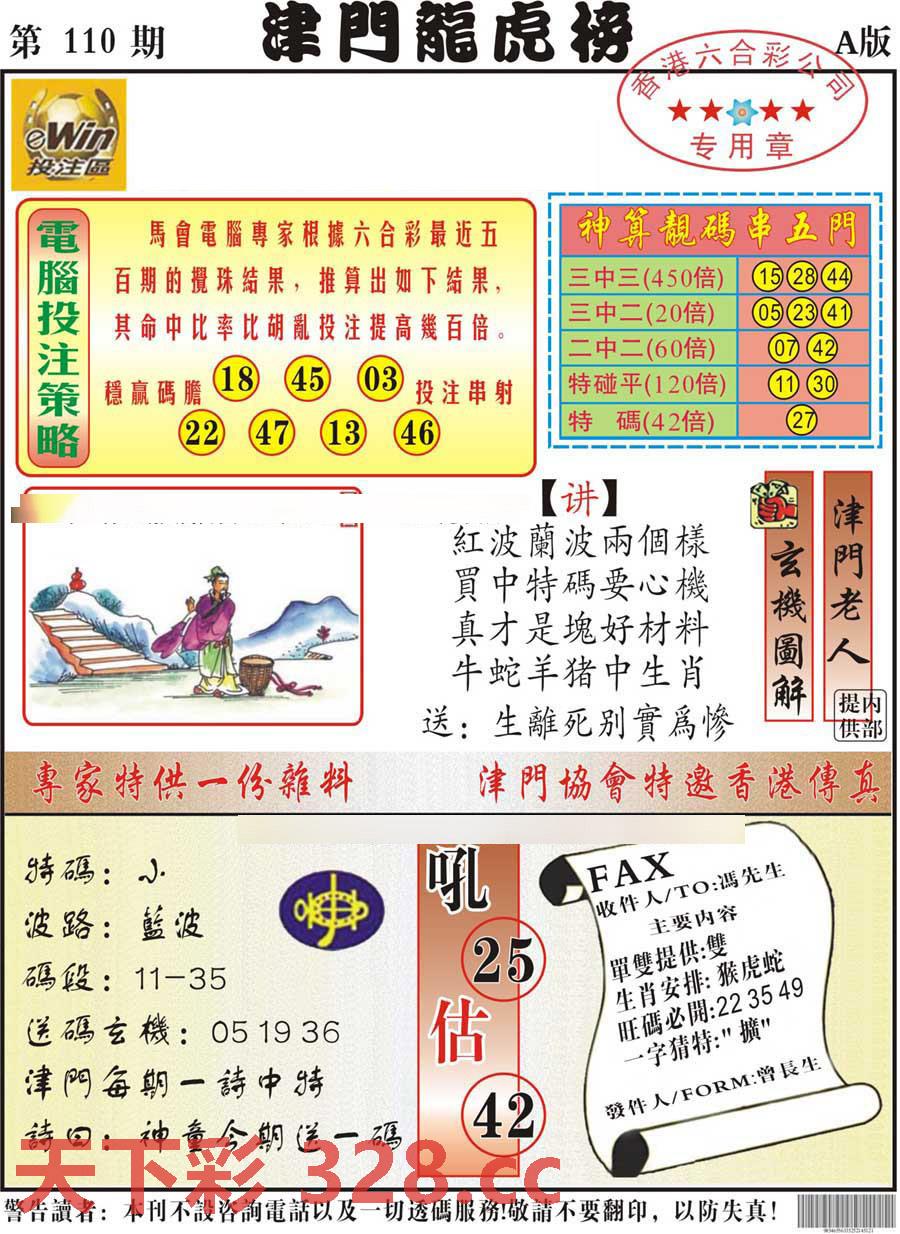 第 110 期
津門龍虎榜
A版
香港六合彩公司
专用章
eWin
投注區
電腦投注策略
馬會電腦專家根據六合彩最近五
百期的攪珠結果，推算出如下結果，
其命中比率比胡亂投注提高幾百倍。
穩贏碼膽 18 45 03 投注串射
22 47 13 46
神算靚碼串五門
三中三(450倍) 15 28 44
三中二(20倍) 05 23 41
二中二(60倍) 07 42
特碰平(120倍) 11 30
特 碼(42倍) 27
【讲】
紅波蘭波兩個樣
買中特碼要心機
真才是塊好材料
牛蛇羊猪中生肖
送：生離死别實爲慘
玄機圖解
津門老人
内部提供
專家特供一份雜料
津門協會特邀香港傳真
特碼：小
波路：藍波
碼段：11-35
送碼玄機：05 19 36
津門每期一詩中特
詩曰：神童今期送一碼
吼
25
估
42
FAX
收件人/TO:馮先生
主要内容
單雙提供:雙
生肖安排:猴虎蛇
旺碼必開:22 35 49
一字猜特:"擴"
發件人/FORM:曾長生
天下彩 328.cc
警告讀者：本刊不設咨詢電話以及一切透碼服務!敬請不要翻印，以防失真!